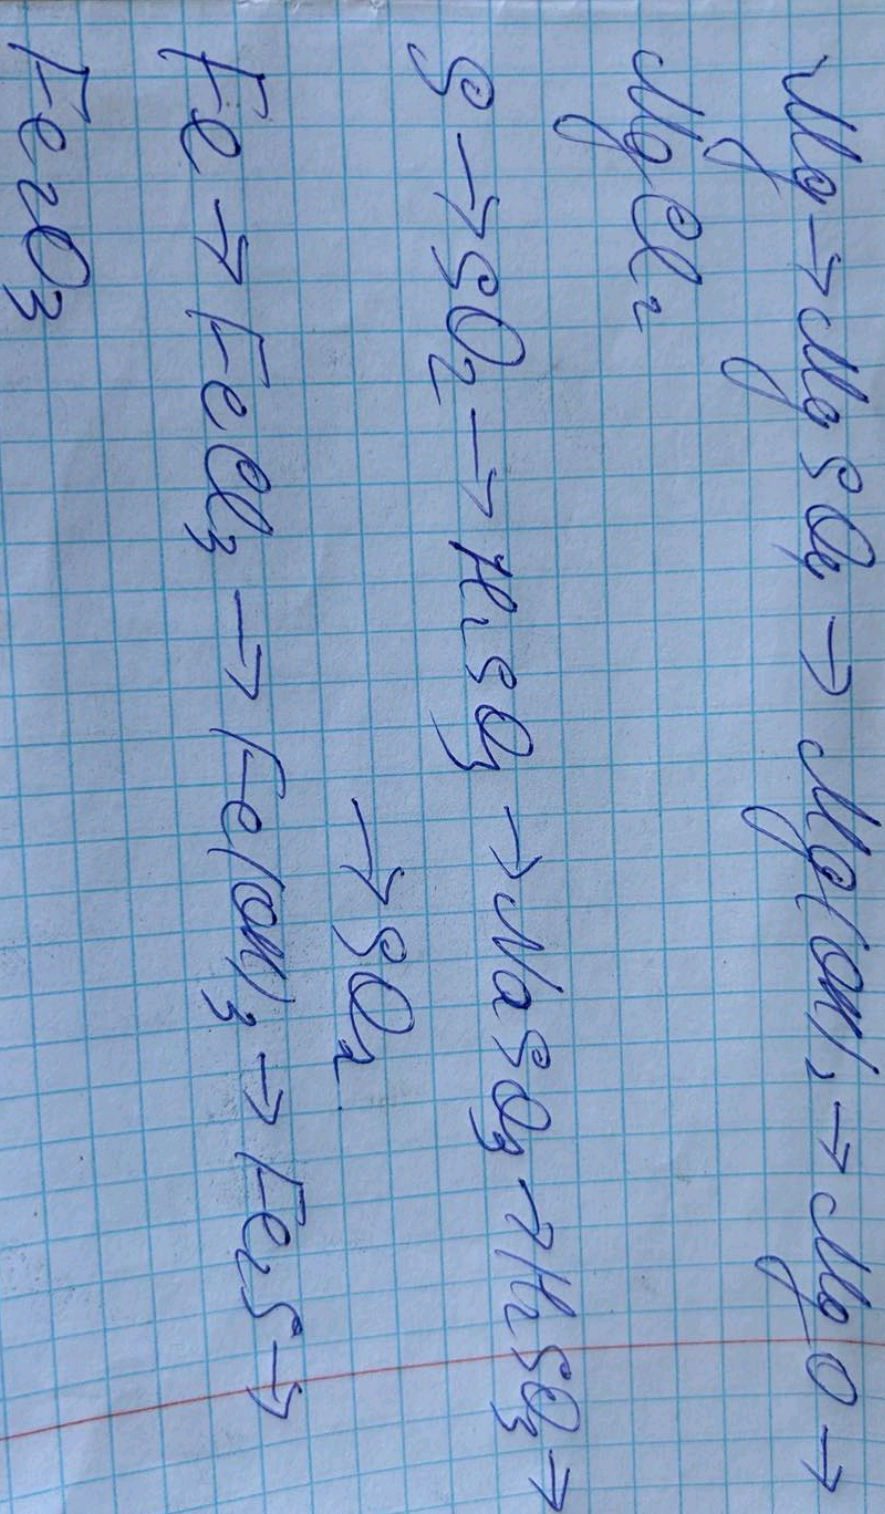 Mg → MgSO4 → Mg(OH)2 → MgO →
MgCl2
S → SO2 → H2SO3 → NaSO3 → H2SO3 →
→ SO2
Fe → FeCl3 → Fe(OH)3 → Fe2S →
Fe2O3